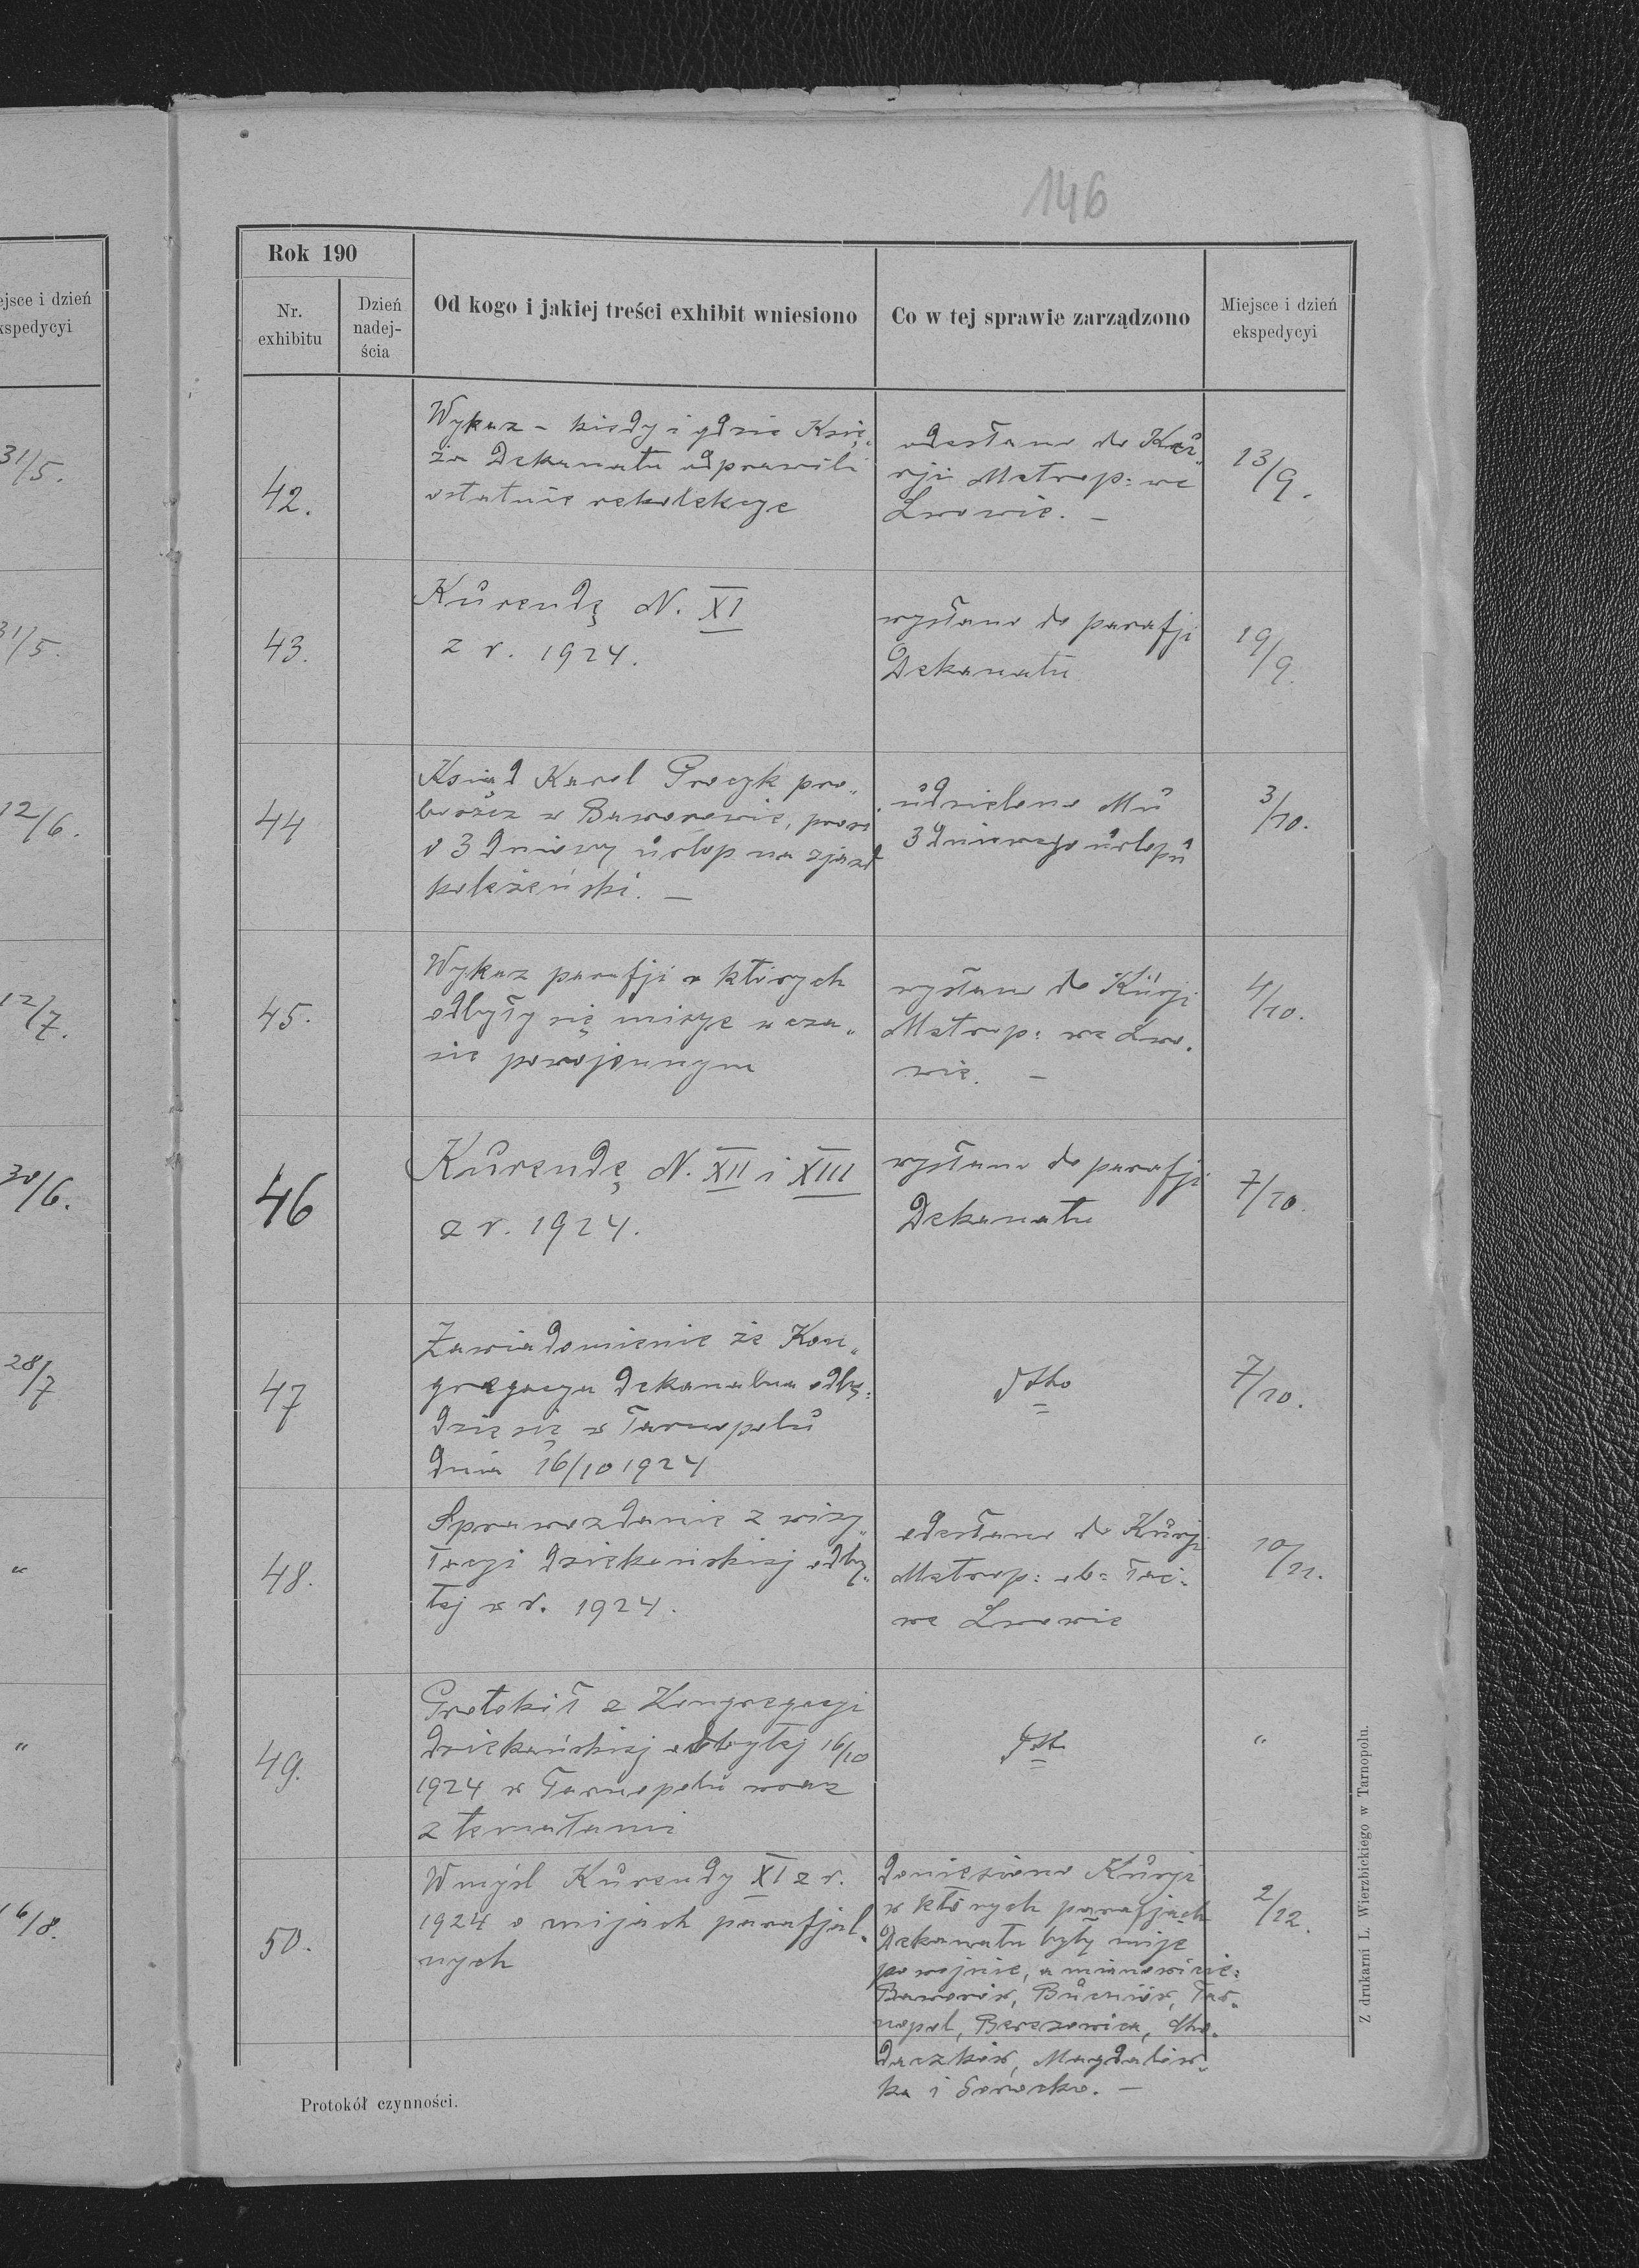 ejsce i dzień
kspedycyi
31/5.
31/5.
12/6.
12/7.
30/6.
28/7
"
"
16/8.
146
Rok 190
Nr.
exhibitu
Dzień
nadej-
ścia
Od kogo i jakiej treści exhibit wniesiono
Co w tej sprawie zarządzono
Miejsce i dzień
ekspedycyi
42.
Wykaz - kiedy i gdzie Księ„
ża Dekanatu odprawili
ostatnie rekolekcye
odesłano do Ku„
rji Metrop: we
Lwowie. –
13/9.
43.
Kurendę N. XI
z r. 1924.
wysłano do parafji
Dekanatu
19/9.
44
Ksiąd Karol Procyk pro„
boszcz w Baworowie, prosi
o 3 dniowy urlop na zjazd
koleżeński. –
udzielono Mu
3 dniowego urlopu
3/10.
45.
Wykaz parafji w których
odbyły się misye w cza„
sie powojennym
wysłano do Kurji
Metrop: we Lwo.
wie. –
4/10.
46
Kurendę N. XII i XIII
z r. 1924.
wysłano do parafji
Dekanatu
7/10.
47
Zawiadomienie że Kon„
gregacya dekanalna odbę:
dzie się w Tarnopolu
dnia 16/10 1924
dtto
7/10.
48.
Sprawozdanie z wizy„
tacyi dziekańskiej odby„
tej w r. 1924.
odesłano do Kurji
Metrop: ob: łac:
we Lwowie
10/11.
49.
Protokół z Kongregacyi
dziekańskiej odbytej 16/10
1924 w Tarnopolu wraz
z tematami
dtto
"
50.
W myśl Kurendy XI z r.
1924 o misjach parafjal„
nych
doniesiono Kurji
w których parafjach
Dekanatu były misje
po wojnie, a mianowicie:
Baworów, Buczniów, Tar„
nopol, Berezowica, Cho„
daczków, Magdalów„
ka i Sorocko. –
2/12.
Protokół czynności.
Z drukarni L. Wierzbickiego w Tarnopolu.